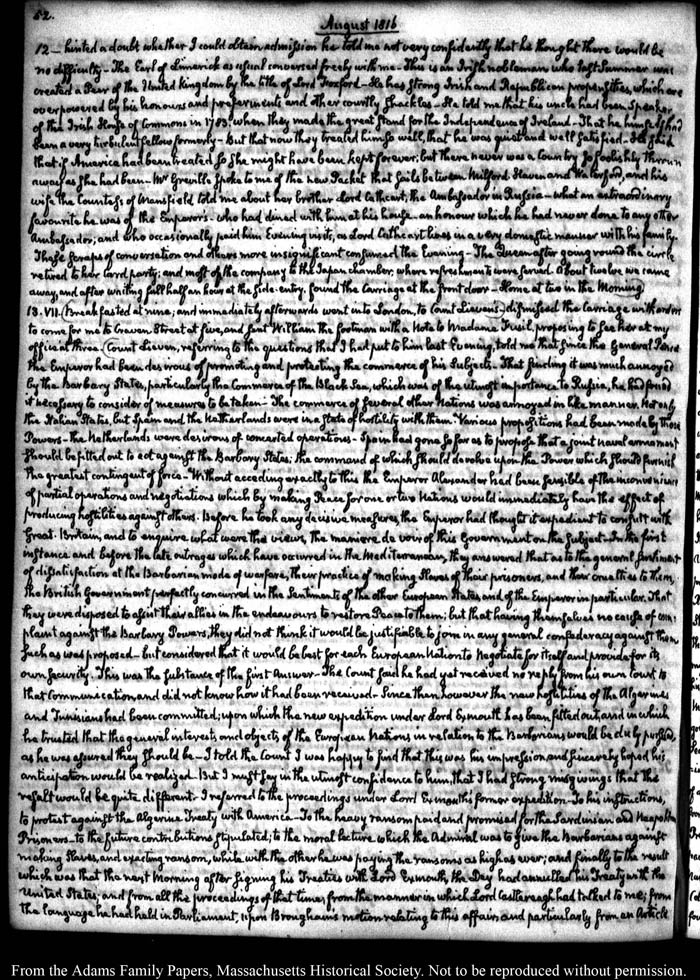 52.
August 1816
12 — hinted a doubt whether I could obtain admission he told me not very confidently that he thought there would be
no difficulty — The Earl of Limerick as usual conversed freely with me — This is an Irish nobleman who last Summer was
created a Peer of the United Kingdom by the title of Lord Foxford — He has strong Irish and Republican propensities, which are
overpowered by his honours and preferments and other courtly shackles — He told me that his uncle had been Speaker
of the Irish House of Commons in 1783 when they made the great stand for the Independence of Ireland — That he himself had
been a very turbulent fellow formerly — But that now they treated him so well, that he was quiet and well satisfied — He said
that if America had been treated so she might have been kept forever; but there never was a Country so foolishly thrown
away as she had been — Mr Greville spoke to me of the new Packet that sails between Milford Haven and Waterford, and his
wife the Countess of Mansfield told me about her brother Lord Cathcart, the Ambassador in Russia — what an extraordinary
favourite he was of the Emperor's — who had dined with him at his house — an honour which he had never done to any other
Ambassador; and who occasionally paid him Evening visits, as Lord Cathcart lives in a very domestic manner with his family.
These scraps of conversation and others more insignificant consumed the Evening — The Queen after going round the circle
retired to her card party; and most of the company to the Japan chamber, where refreshments were served. About twelve we came
away, and after waiting full half an hour at the side-entry, found the Carriage at the front door — Home at two in the Morning
13. VII. Breakfasted at nine; and immediately afterwards went into London, to Count Lieven's — dismissed the Carriage with orders
to come for me to Craven Street at five, and sent William the footman with a Note to Madame proposing to see her at my
office at three. Count Lieven, referring to the questions that I had put to him last Evening, told me that since the General Peace
the Emperor had been desirous of promoting and protecting the commerce of his Subjects — That finding it was much annoyed
by the Barbary States, particularly the Commerce of the Black Sea, which was of the utmost importance to Russia, he had found
it necessary to consider of measures to be taken — The commerce of several other Nations was annoyed in like manner. Not only
the Italian States, but Spain and the Netherlands were in a State of hostility with them — Various propositions had been made by those
Powers — the Netherlands were desirous of concerted operations — Spain had gone so far as to propose that a joint naval armament
should be fitted out to act against the Barbary States; the command of which should devolve upon the Power which should furnish
the greatest contingent of force — Without acceding exactly to this the Emperor Alexander had been sensible of the inconvenience
of partial operations and negotiations which by making Peace for one or two Nations would immediately have the effect of
producing hostilities against others. Before he took any decisive measure, the Emperor had thought it expedient to consult with
Great Britain, and to enquire what were the views, the maniere de voir of this Government on the Subject — In the first
instance and before the late outrages which have occurred in the Mediterranean, they answered that as to the general sentiment
of dissatisfaction at the Barbarian mode of warfare, their practice of making Slaves of their prisoners, and their cruelties to them,
the British Government perfectly concurred in the Sentiments of the other European States, and of the Emperor in particular. That
they were disposed to assist their allies in the endeavours to restore Peace to them; but that having themselves no cause of com-
plaint against the Barbary Powers, they did not think it would be justifiable to join in any general confederacy against them,
such as was proposed — but considered that it would be best for each European Nation to Negotiate for itself and provide for its
own security. This was the substance of the first Answer — The Count said he had yet received no reply from his own Court to
that Communication, and did not know how it had been received — Since then however the new hostilities of the Algerines
and Tunisians had been committed; upon which the new expedition under Lord Exmouth has been fitted out; and in which
he trusted that the general interests and objects of the European Nations in relation to the Barbarians would be duly pursued,
as he was assured they should be — I told the Count I was happy to find that this was his impression and sincerely hoped his
anticipation would be realized. But I must say in the utmost confidence to him, that I had strong misgivings that the
result would be quite different. I referred to the proceedings under Lord Exmouth's former expedition — To his instructions,
to protest against the Algerine Treaty with America — To the heavy ransom paid and promised for the Sardinian and Neapolitan
Prisoners — to the future contributions stipulated; to the moral lecture which the Admiral was to give the Barbarians against
making Slaves, and exacting ransom, while with the other he was paying the ransoms as high as ever; and finally to the result
which was that the next Morning after signing his Treaties with Lord Exmouth, the Dey had annulled his Treaty with the
United States; and from all the proceedings of that time; from the manner in which Lord Castlereagh had talked to me; from
the language he had held in Parliament, upon Brougham's motion relating to this affair; and particularly from an Article
From the Adams Family Papers, Massachusetts Historical Society. Not to be reproduced without permission